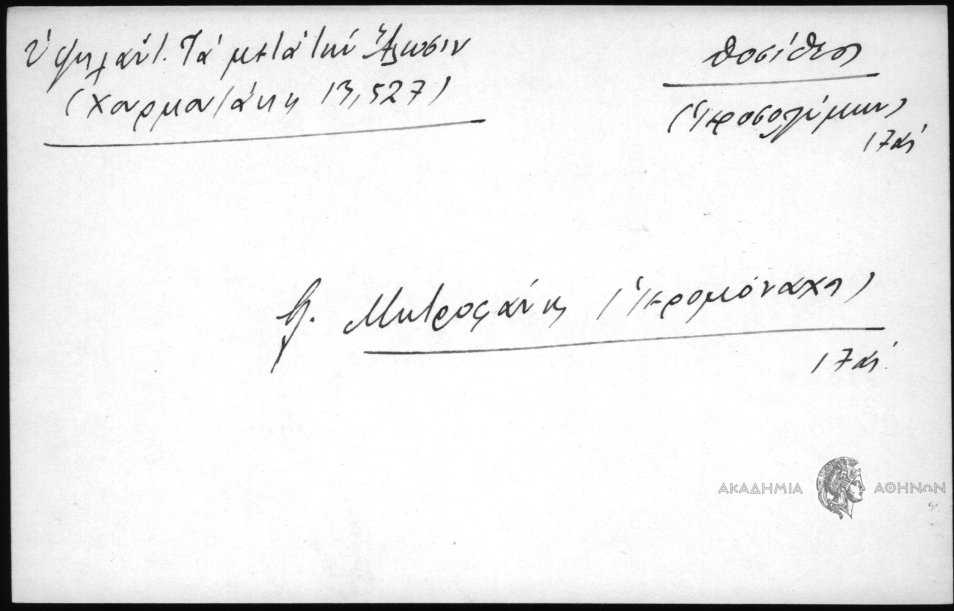 Ὑψηλάντ. Τὰ μετὰ τὴν Ἅλωσιν
(Χαρματάκης 13, 527)
Δοσίθεος
(Ἱεροσολύμων)
17 αἰ
Μητροφάνης (Ἱερομόναχος)
17 αἰ.
ΑΚΑΔΗΜΙΑ ΑΘΗΝΩΝ